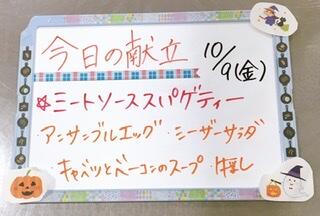 今日の献立
10/9(金)
☆ミートソーススパゲティー
・アンサンブルエッグ ・シーザーサラダ
・キャベツとベーコンのスープ ・梨